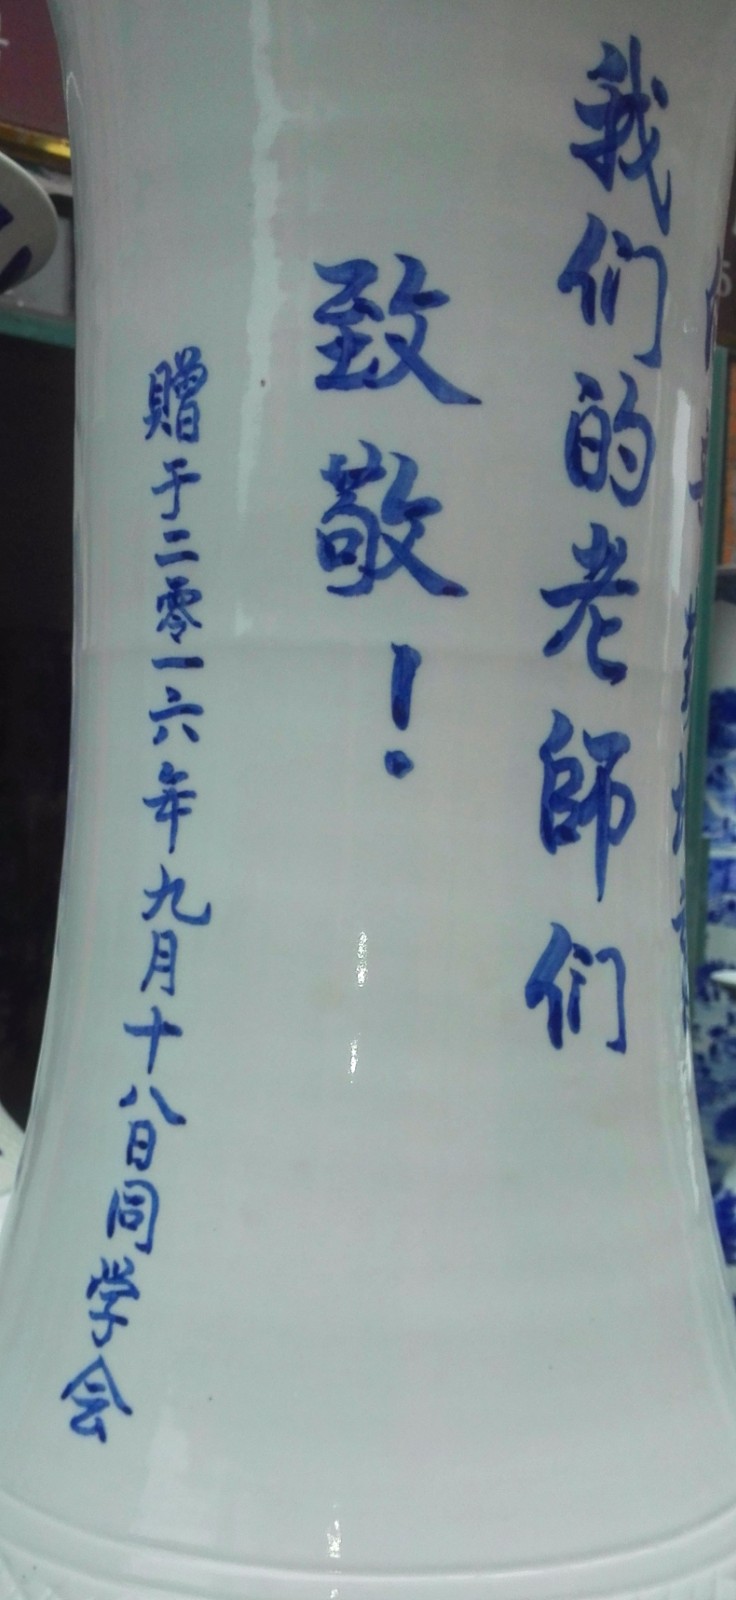 我们的老師们
致敬！
贈于二零一六年九月十八日同学会